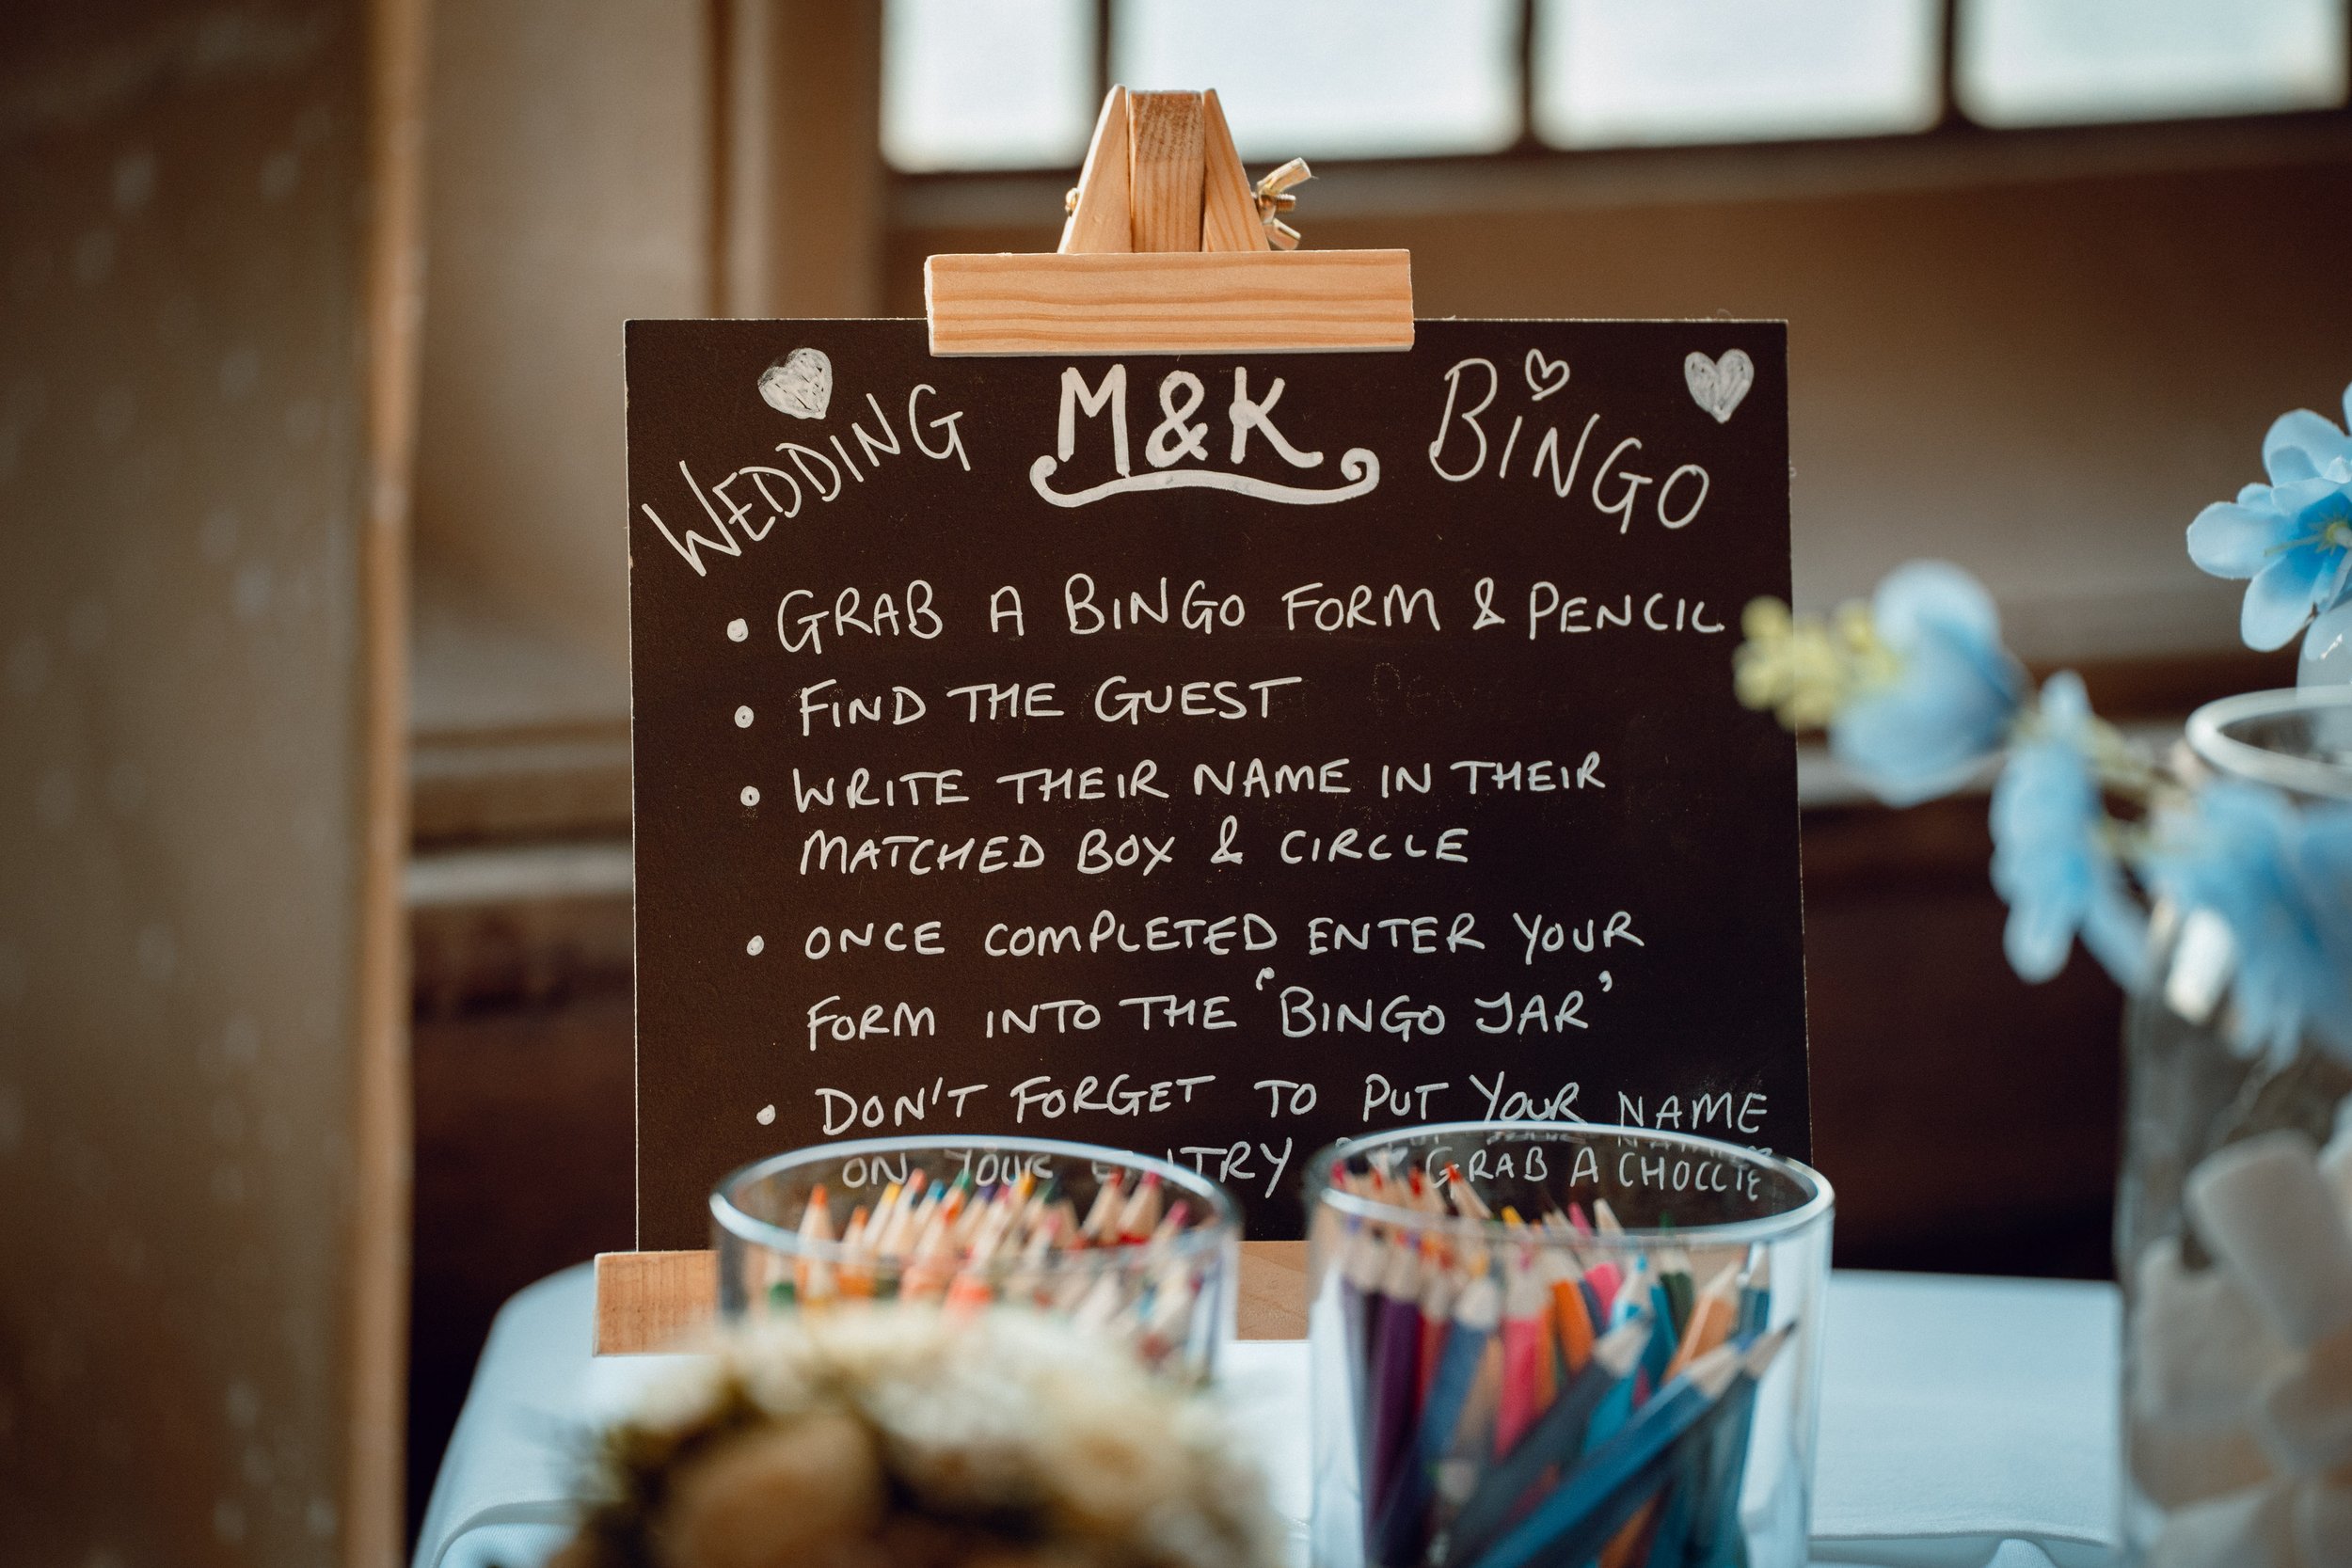 WEDDING M&K BINGO
• GRAB A BINGO FORM & PENCIL
• FIND THE GUEST
• WRITE THEIR NAME IN THEIR
MATCHED BOX & CIRCLE
• ONCE COMPLETED ENTER YOUR
FORM INTO THE 'BINGO JAR'
• DON'T FORGET TO PUT YOUR NAME
ON YOUR ENTRY GRAB A CHOCCIE